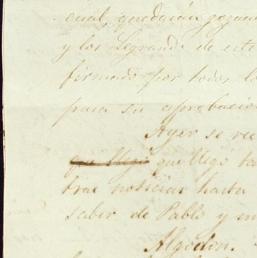 cual, quedarán
y los Legrand. de este
firmado por todos lo
para su aprobacion
Ayer se rec
que llegó que llegó
trae noticias hasta
saber de Pablo y mi
Algodon.